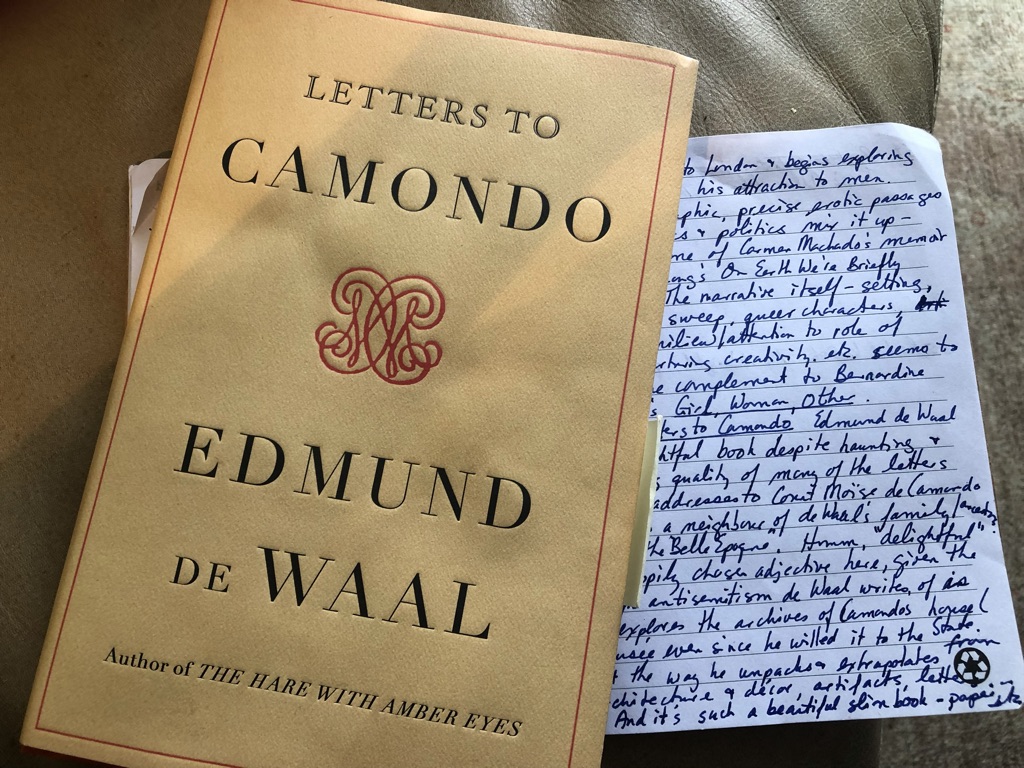 LETTERS TO
CAMONDO
EDMUND
DE WAAL
Author of THE HARE WITH AMBER EYES
to London & begins exploring
his attraction to men.
precise erotic passages
& politics mix it up –
of Carmen Machado's memoir
On Earth We're Briefly
The narrative itself – setting,
sweep, queer characters,
attention to role of
creativity, etc. seems to
complement to Bernardine
Girl, Woman, Other.
to Camondo Edmund de Waal
book despite haunting &
quality of many of the letters
addresses to Count Moïse de Camondo
a neighbour of de Waal's family
Belle Epoque". Hmmm, "delightful"
chosen adjective here, given the
antisemitism de Waal writes of as
explores the archives of Camondo's house (
even since he willed it to the State.
the way he unpacks & extrapolates from
& décor, artifacts,
And it's such a beautiful slim book – paper